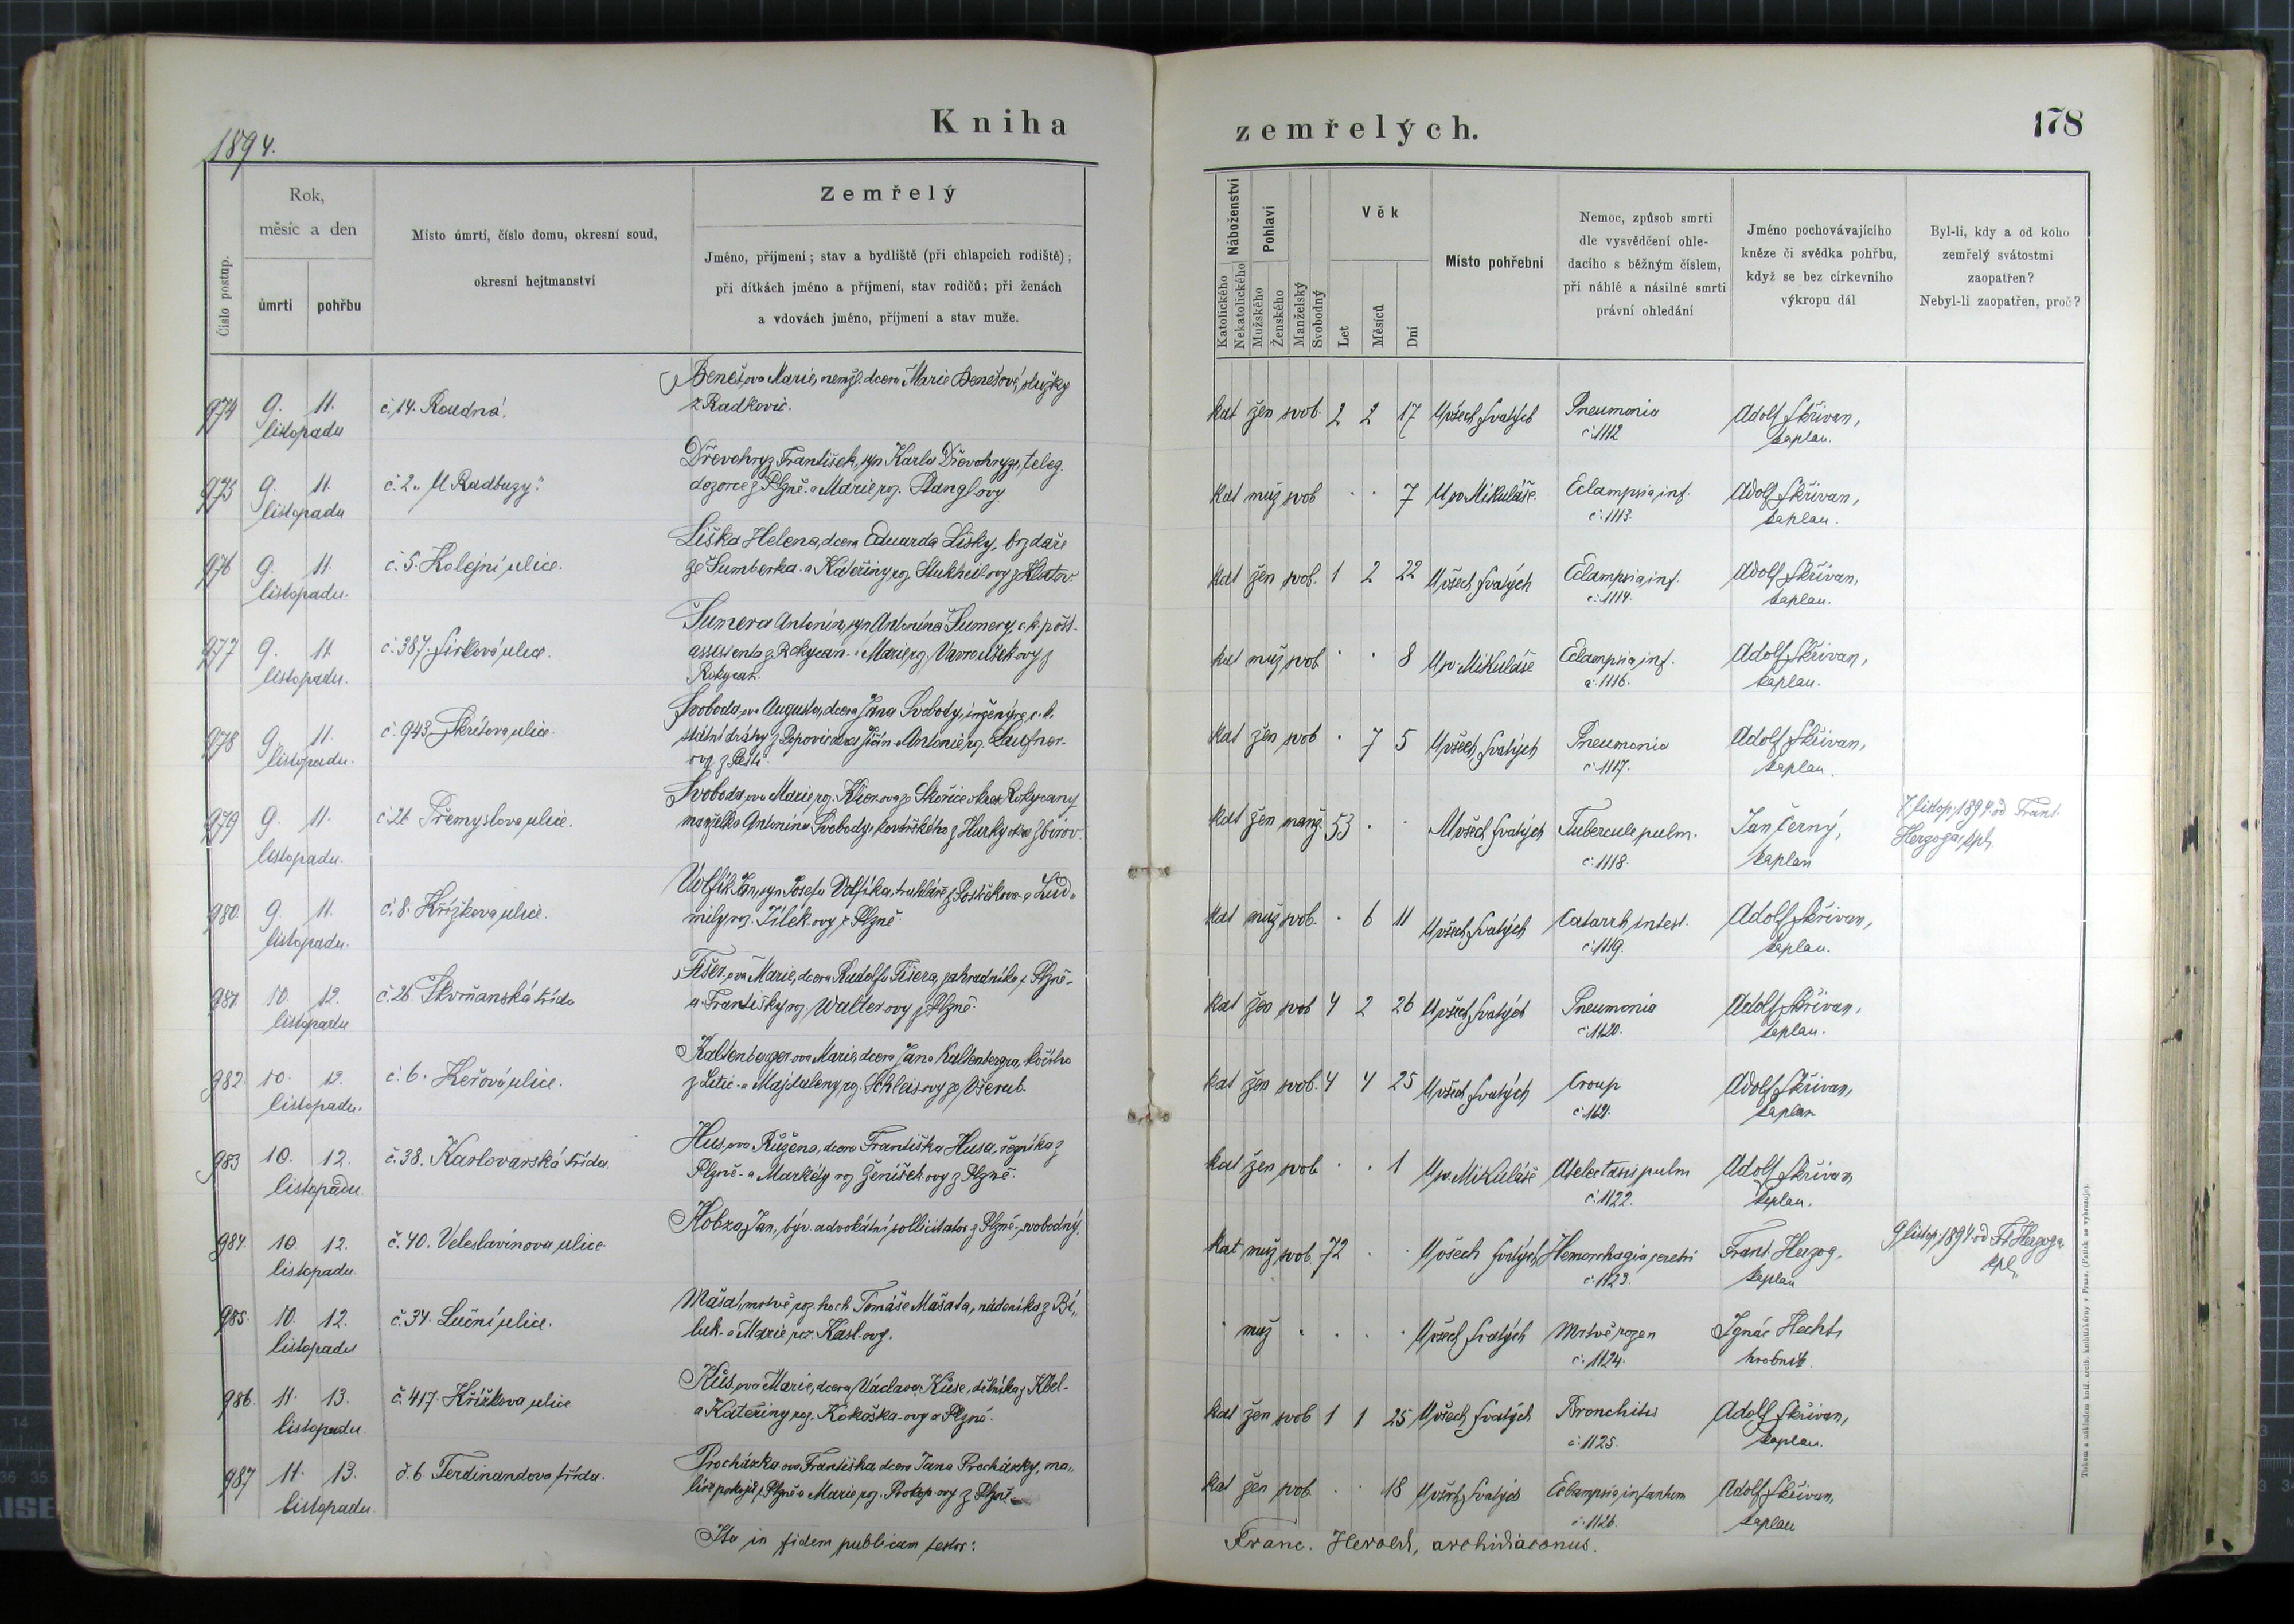 Kniha
zemřelých.
178
1894.
Číslo postup.
Rok,
měsíc a den
úmrtí
pohřbu
Místo úmrtí, číslo domu, okresní soud,
okresní hejtmanství
Zemřelý
Jméno, příjmení; stav a bydliště (při chlapcích rodiště);
při dítkách jméno a příjmení, stav rodičů; při ženách
a vdovách jméno, příjmení a stav muže.
Náboženství
Katolického
Nekatolického
Pohlaví
Mužského
Ženského
Manželský
Svobodný
Věk
Let
Měsíců
Dní
Místo pohřební
Nemoc, způsob smrti
dle vysvědčení ohle-
dacího s běžným číslem,
při náhlé a násilné smrti
právní ohledání
Jméno pochovávajícího
kněze či svědka pohřbu,
když se bez církevního
výkropu dál
Byl-li, kdy a od koho
zemřelý svátostmi
zaopatřen?
Nebyl-li zaopatřen, proč?
Beneš, ova Marie, nemž. dcera Marie Benešové, služky
z Radkovic.
974 9. 11. č. 14. Roudná. kat žen svob. 2 2 17 U všech svatých Pneumonia Adolf Skřivan,
listopadu č. 1112 kaplan.
Dřevohryz František, syn Karla Dřevohryze, teleg.
dozorce z Plzně a Marie roz. Stangl ovy
975 9. 11. č. 2 „U Radbuzy“. kat muž svob . . 7 U sv Mikuláše. Eclampsia inf. Adolf Skřivan,
listopadu č. 1113. kaplan.
Liška Helena, dcera Eduarda Lišky, brzdaře
ze Šumberka a Kateřiny roz. z Klatov.
976 9. 11. č. 5. Kolejní ulice. kat žen svob. 1 2 22 U všech svatých Eclampsia inf. Adolf Skřivan,
listopadu. č. 1114. kaplan.
Šumera Antonín, syn Antonína Šumery, c. k. pošt.
assistenta z Rokycan a Marie roz. ovy z
Rokycan.
977 9. 11. č. 387. ulice. kat muž svob . . 8 U sv. Mikuláše Eclampsia inf. Adolf Skřivan,
listopadu. č. 1116. kaplan.
Svoboda, ova Augusta, dcera Jana Svobody, inženýra c. k.
státní dráhy z Popovic a Antonie roz.
ovy z Pešti.
978 9. 11. č. 943 Škrétova ulice. kat žen svob . 7 5 U všech svatých Pneumonia Adolf Skřivan,
listopadu. č. 1117. kaplan.
Svoboda, ova Marie roz. ze Skořice okres Rokycany
manželka Antonína Svobody, z Hurky okres Zbirov.
979 9. 11. č. 21 Přemyslova ulice. kat žen manž. 53 . . U všech svatých Tubercule pulm. Jan Černý, 7. listop. 1894 od Frant.
listopadu. č. 1118. kaplan Herzoga, kpl.
Volfík Jan, syn Josefa Volfíka, truhláře z Postřekova a Lud-
mily roz. Jílek-ovy z Plzně.
980 9. 11. č. 8. Křížkova ulice. kat muž svob. . 6 11 U všech svatých Catarrh intest. Adolf Skřivan,
listopadu. č. 1119. kaplan.
Fišer, ova Marie, dcera Rudolfa Fišera, zahradníka z Plzně
a Františky roz. Walter-ovy z Plzně.
981 10. 12. č. 26. Skvrňanská třída kat žen svob 4 2 26 U všech svatých Pneumonia Adolf Skřivan,
listopadu č. 1120. kaplan.
Kaltenberger ova Marie, dcera Jana Kaltenbergra, kočího
z Litic a Majdaleny roz. ovy ze Všerub.
982. 10. 12. č. 6. ulice. kat žen svob. 4 4 25 U všech svatých Croup Adolf Skřivan,
listopadu. č. 1121. kaplan
Hus, ova Růžena, dcera Františka Husa, řezníka z
Plzně a Markéty roz. Ženíšek-ovy z Plzně.
983 10. 12. č. 38. Karlovarská třída. kat žen svob . . 1 U sv. Mikuláše Atelectasis pulm Adolf Skřivan
listopadu. č. 1122. kaplan.
Hobza Jan, býv. advokátní sollicitator z Plzně, svobodný.
984. 10. 12. č. 40. Veleslavínova ulice. kat muž svob. 72 . . U všech svatých Hemorrhagia cerebri Frant. Herzog, 9 listop. 1894 od Fr. Herzoga
listopadu č. 1123. kaplan kpl.
Mašat, mrtvě roz. hoch Tomáše Mašata, nádeníka z Bí-
luk a Marie roz. Kasl-ovy.
985. 10. 12. č. 34. Luční ulice. . muž . . . . U všech svatých Mrtvě rozen Ignác Hecht,
listopadu č. 1124. hrobník.
Kůs, ova Marie, dcera Václava Kůse, dělníka z Kbel
a Kateřiny roz. Kokoška-ovy z Plzně.
986. 11. 13. č. 417. Křížkova ulice kat žen svob 1 1 25 U všech svatých Bronchitis Adolf Skřivan,
listopadu. č. 1125. kaplan.
Procházka ova Františka dcera Jana Procházky, ma-
líře pokojů z Plzně a Marie roz. Prokop ovy z Plzně.
987 11. 13. č. 6. Ferdinandova třída. kat žen svob . . 18 U všech svatých Eclampsia infantum Adolf Skřivan,
listopadu. č. 1126. kaplan
Ita in fidem publicam testor:
Franc. Herold, archidiaconus.